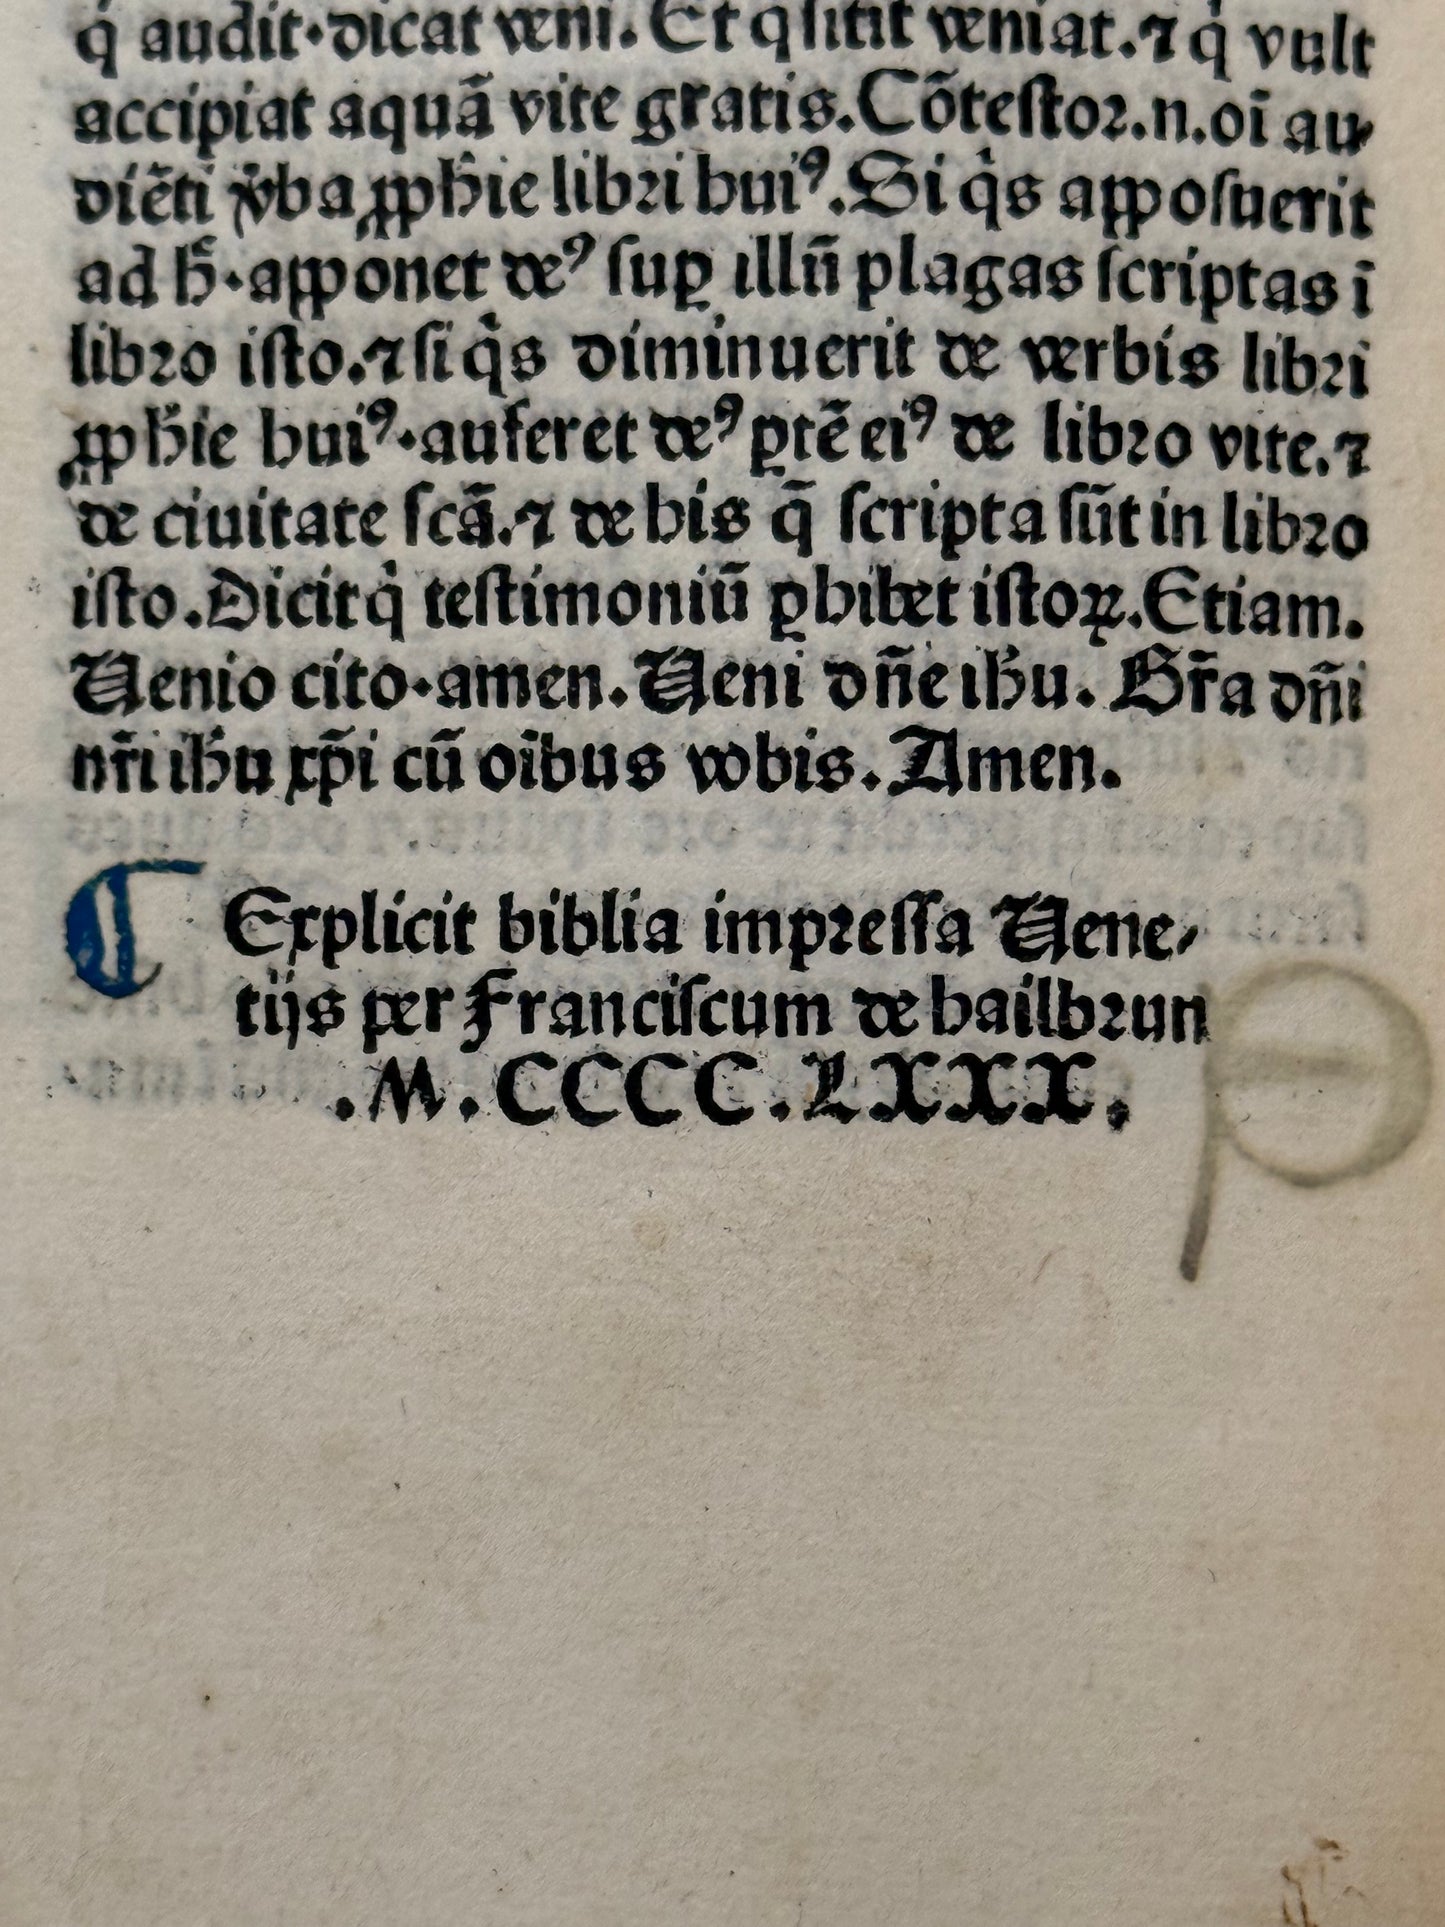 q̇ audit·dicat veni. Et q sitit veniat.⁊ q̇ vult
accipiat aquã vite gratis. Cõtestoꝛ.n.oī au⸗
diẽti v̇ba ꝓph̄ie libꝛi huiꝰ. Si q̇s apposuerit
ad h̄·apponet deꝰ suꝑ illũ plagas scriptas ī
libꝛo isto.⁊ si q̇s diminuerit de verbis libꝛi
ꝓph̄ie huiꝰ·auferet deꝰ ꝑtẽ eiꝰ de libꝛo vite.⁊
de ciuitate scã.⁊ de his q̄ scripta sūt in libꝛo
isto. Dicit q̇ testimoniũ ꝑhibet istoꝝ. Etiam.
Uenio cito·amen. Ueni dñe ih̄u. Gr̃a dñi
nr̃i ih̄u xp̄i cũ oībus vobis. Amen.
C Explicit biblia impꝛessa Uene⸗
tijs per Franciscum de hailbꝛun
.M.CCCC.LXXX.